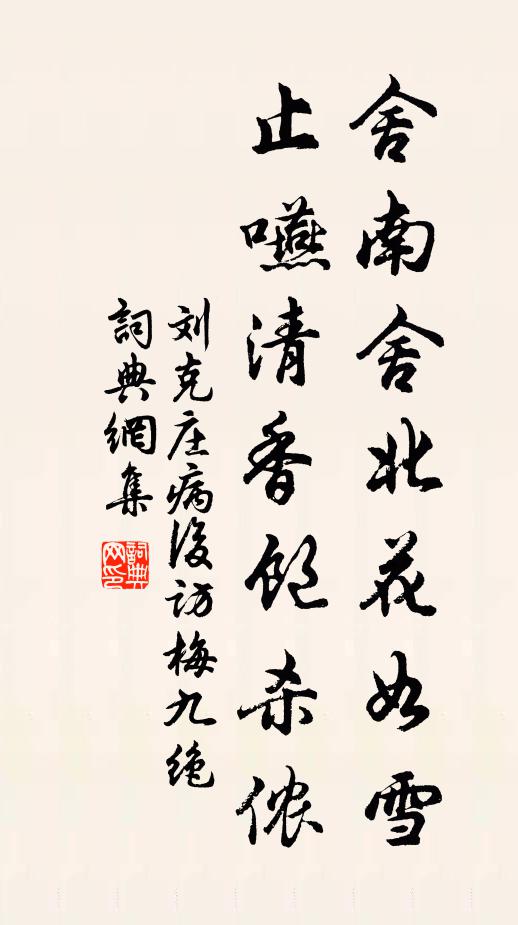 舍南舍北花如雪
止嚥清香饱杀侬
刘克庄病后访梅九绝
詞典網集
詞典网印